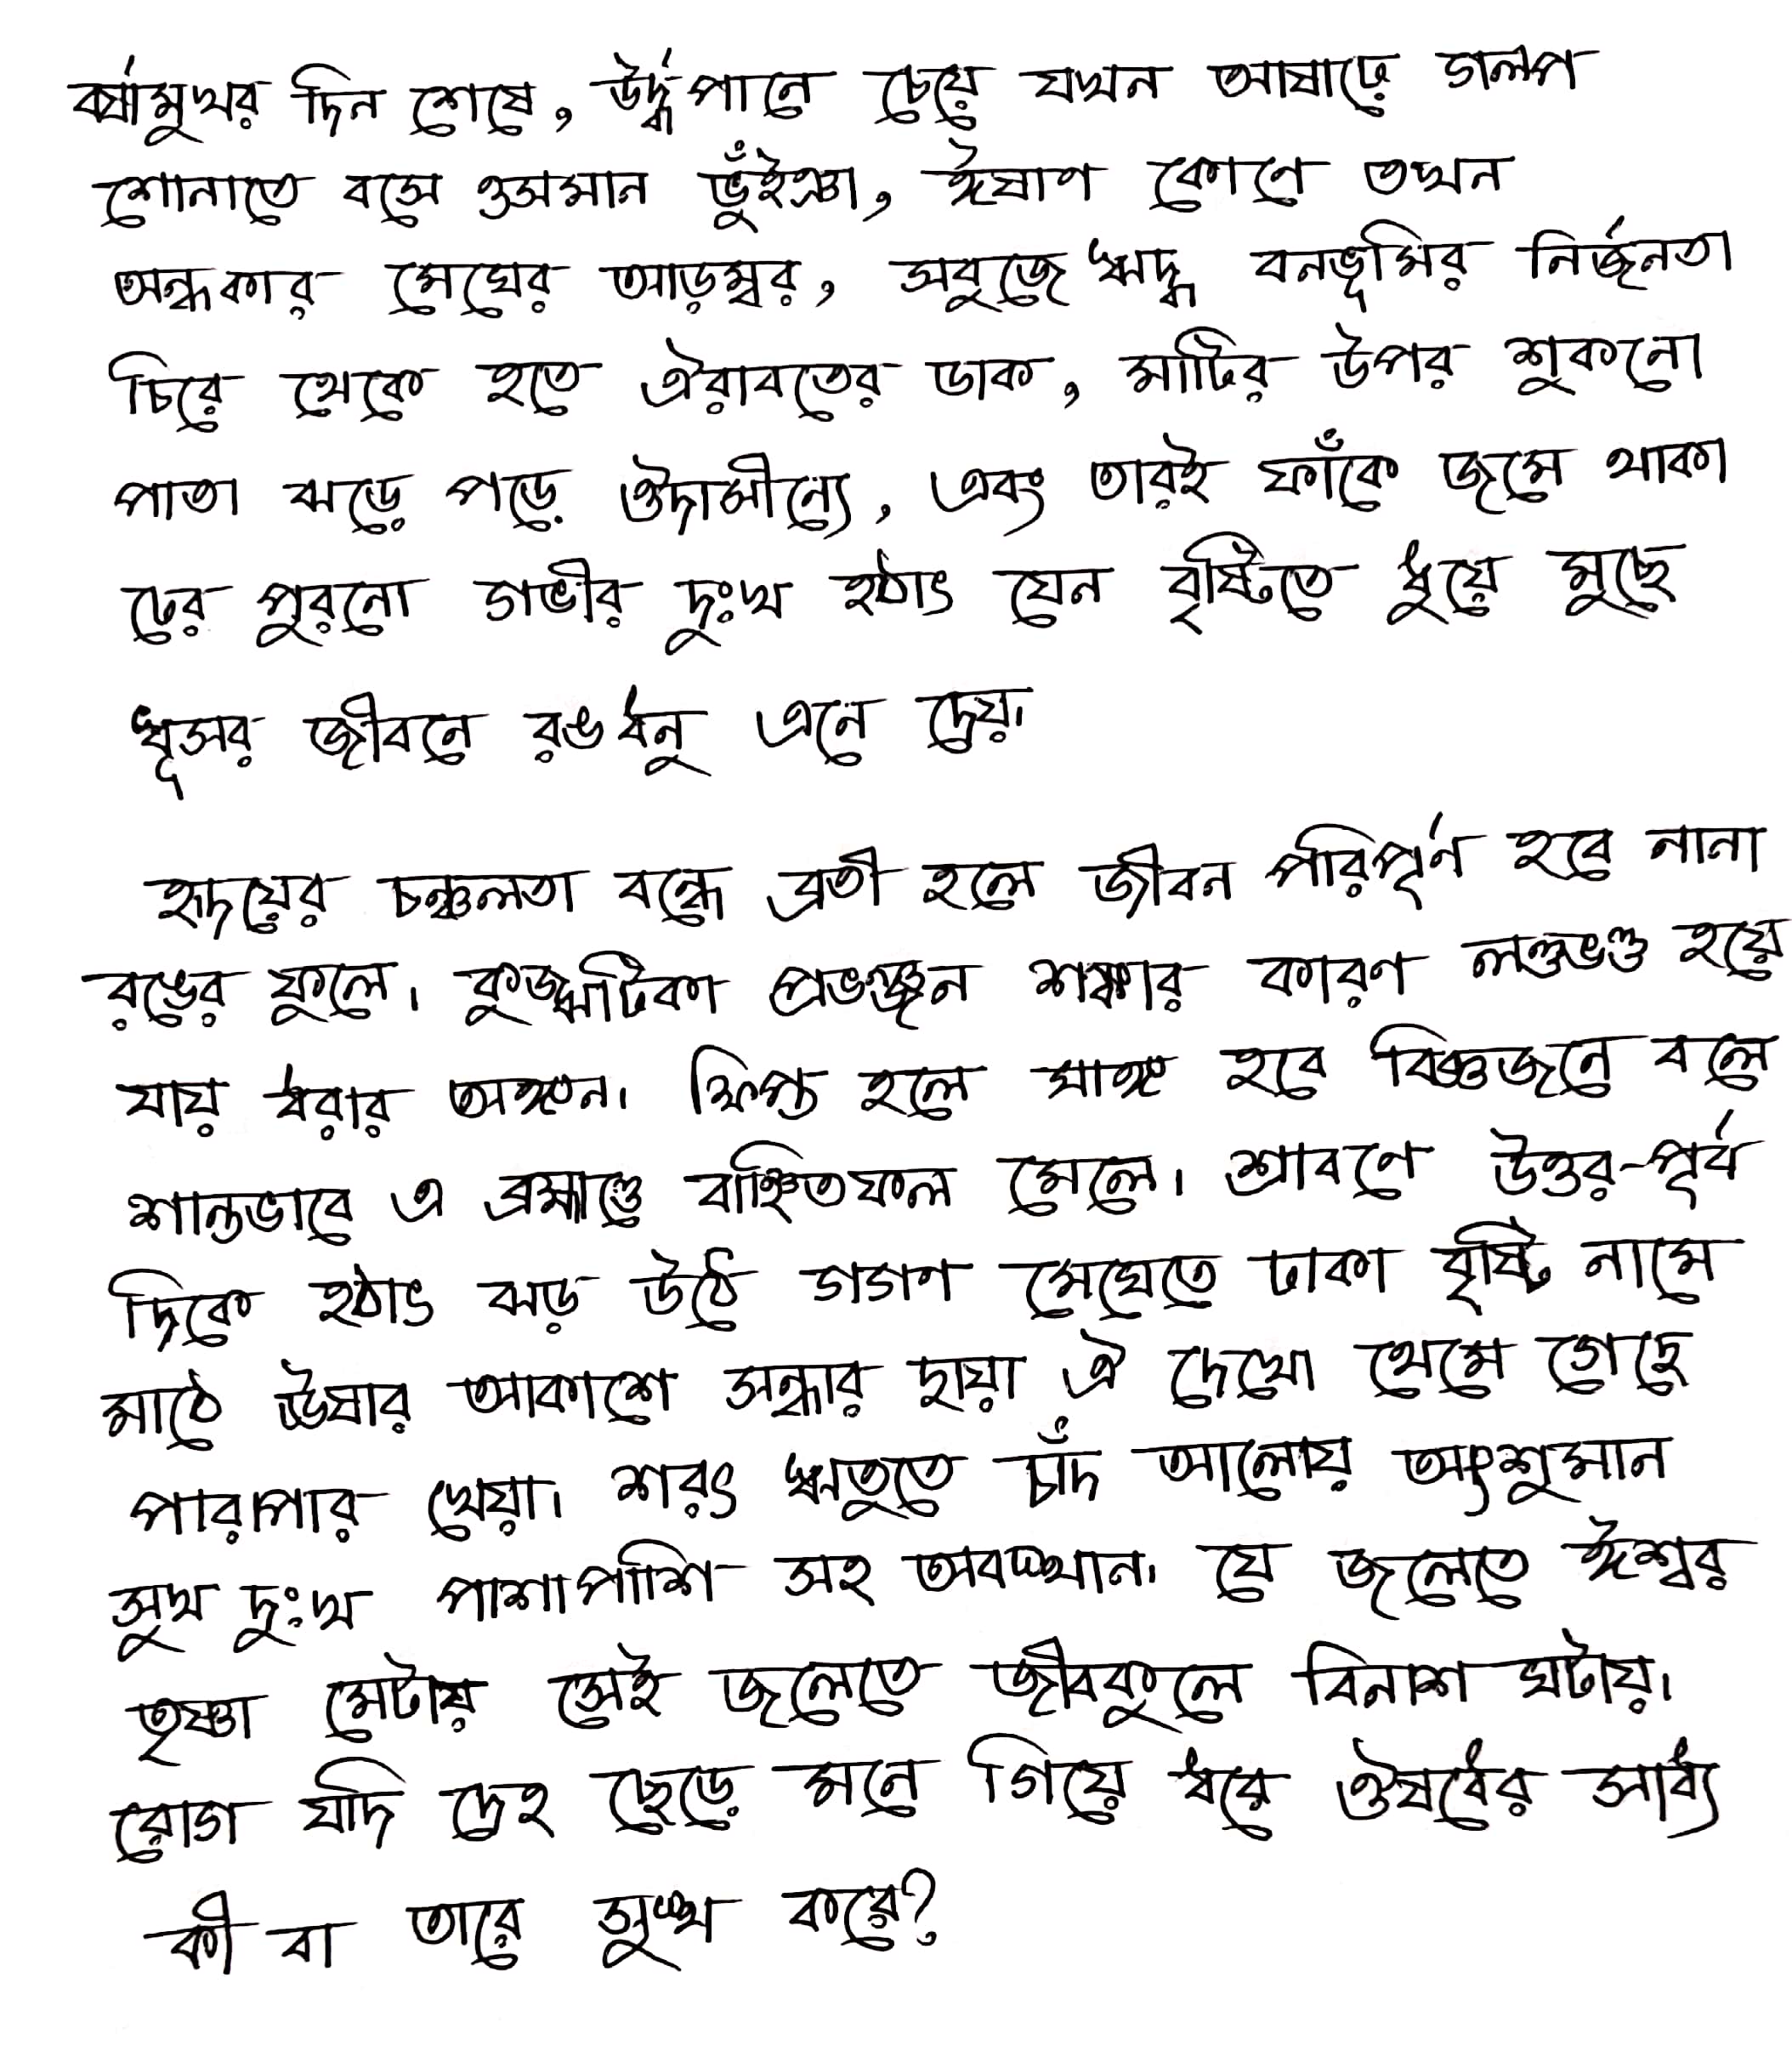 বর্ষামুখর দিন শেষে, উর্দ্ধপানে চেয়ে যখন আষাঢ়ে গল্প
শোনাতে বসে ওসমান ভুঁইঞা, ঈষাণ কোণে তখন
অন্ধকার মেঘের আড়ম্বর, সবুজে ঋদ্ধ বনভূমির নির্জনতা
চিরে থেকে হতে ঐরাবতের ডাক, মাটির উপর শুকনো
পাতা ঝড়ে পড়ে ঔদাসীন্যে, এবং তারই ফাঁকে জমে থাকা
ঢের পুরনো গভীর দুঃখ হঠাৎ যেন বৃষ্টিতে ধুয়ে মুছে
ধূসর জীবনে রঙধনু এনে দেয়।
হৃদয়ের চঞ্চলতা বন্ধে ব্রতী হলে জীবন পরিপূর্ণ হবে নানা
রঙের ফুলে। কুজ্ঝটিকা প্রভঞ্জন শঙ্কার কারণ লণ্ডভণ্ড হয়ে
যায় ধরার অঙ্গন। ক্ষিপ্ত হলে সাঙ্গ হবে বিজ্ঞজনে বলে
শান্তভাবে এ ব্রহ্মাণ্ডে বাঞ্ছিতফল মেলে। শ্রাবণে উত্তর-পূর্ব
দিকে হঠাৎ ঝড় উঠে গগণ মেঘেতে ঢাকা বৃষ্টি নামে
মাঠে ঊষার আকাশে সন্ধার ছায়া ঐ দেখো থেমে গেছে
পারাপার খেয়া। শরৎ ঋতুতে চাঁদ আলোয় অংশুমান
সুখ দুঃখ পাশাপাশি সহ অবস্থান। যে জলেতে ঈশ্বর
তৃষ্ণা মেটায় সেই জলেতে জীবকুলে বিনাশ ঘটায়।
রোগ যদি দেহ ছেড়ে মনে গিয়ে ধরে ঔষধের সাধ্য
কী বা তারে সুস্থ করে?